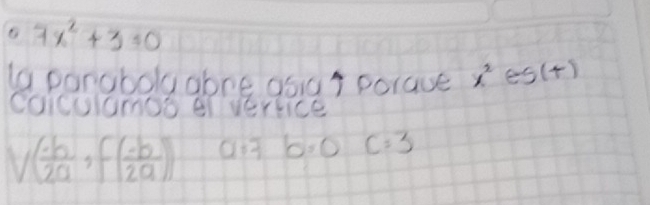 o 7x² + 3 = 0
la parabola abre asia ↑ porque x² es (+)
Calculamos el vertice
V(-b/2a, f(-b/2a)) a=7 b=0 c=3